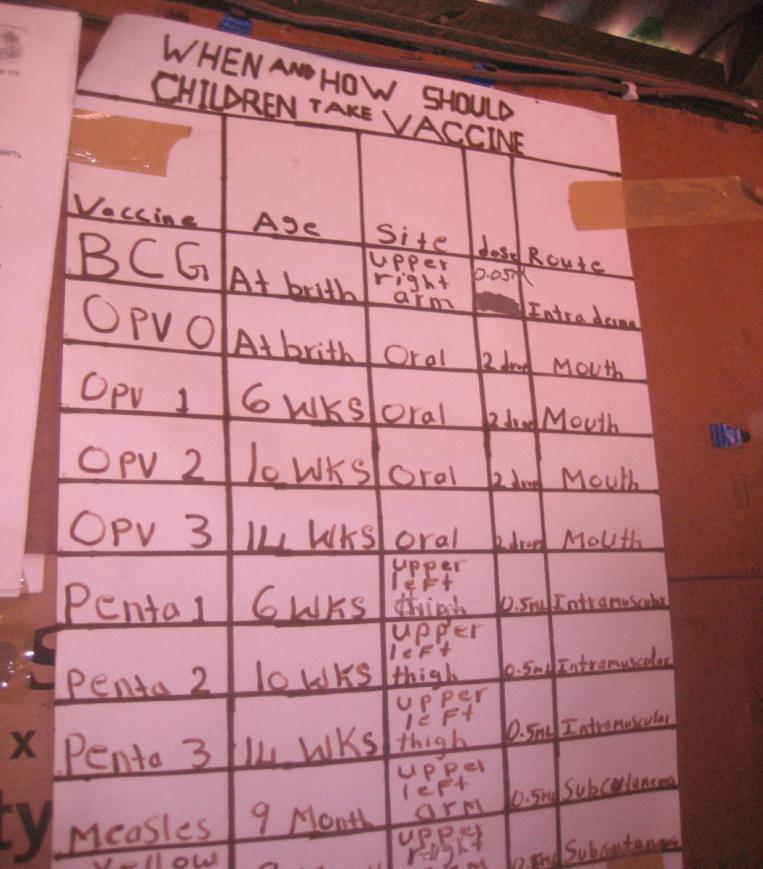 WHEN AND HOW SHOULD
CHILDREN TAKE VACCINE
Vaccine Age Site dose Route
BCG At brith upper right arm 0.05m Intraderma
OPV 0 At brith Oral 2 drop Mouth
OPV 1 6 WKS Oral 2 drop Mouth
OPV 2 10 WKS Oral 2 drop Mouth
OPV 3 14 WKS Oral 2 drop Mouth
Penta 1 6 WKS upper left thigh 0.5mL Intramuscular
Penta 2 10 WKS upper left thigh 0.5mL Intramuscular
Penta 3 14 WKS upper left thigh 0.5mL Intramuscular
Measles 9 Month upper left arm 0.5mL Subcutaneous
Yellow upper right
x
ty